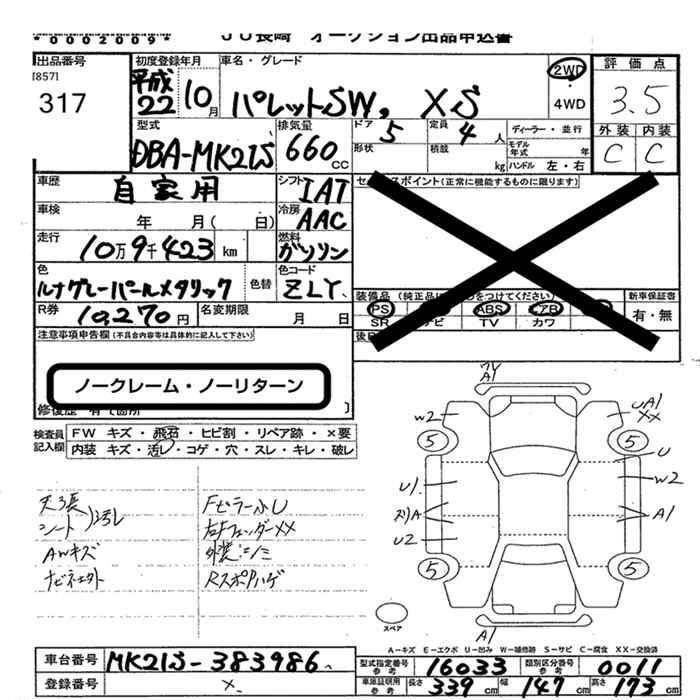 *0002009*
JU長崎 オークション出品申込書
出品番号
[857]
317
初度登録年月
平成22 10月
車名・グレード
パレットSW, XS
2WD
・
4WD
評価点
3.5
外装 内装
C C
型式
DBA-MK21S
排気量
660 CC
ドア 5
定員 4人
形状
積載 kg
ディーラー・並行
モデル年式 年
ハンドル 左・右
車歴 自家用
シフト IAT
車検 年 月( 日)
冷房 AAC
走行 10万9千423 km
燃料 ガソリン
色 ルナグレーパールメタリック
色替
色コード ZLY
R券 10,270円
名変期限 月 日
スポイント(正常に機能するものに限ります)
装備品 (純正品に をつけてください)
PS ABS エアB
SR ナビ TV カワ
新車保証書
有・無
注意事項申告欄(不具合内容等は具体的に記入して下さい)
ノークレーム・ノーリターン
修復歴 有( 箇所 )
検査員記入欄
FW キズ・飛石・ヒビ割・リペア跡・×要
内装 キズ・汚レ・コゲ・穴・スレ・キレ・破レ
天張
シート )汚レ
AWキズ
Fピラー小U
右Fフェンダー××
外装小
RスポPハゲ
A1
W2
UA1
××
5
5
U
W2
U1
スリA
U2
A1
5
5
A1
スペア
A-キズ E-エクボ U-凹み W-補修跡 S-サビ C-腐食 XX-交換済
車台番号 MK21S-383986
登録番号
型式指定番号 参考 16033
類別区分番号 参考 0011
車庫証明用 参考 長さ 339 cm 幅 147 cm 高さ 173 cm